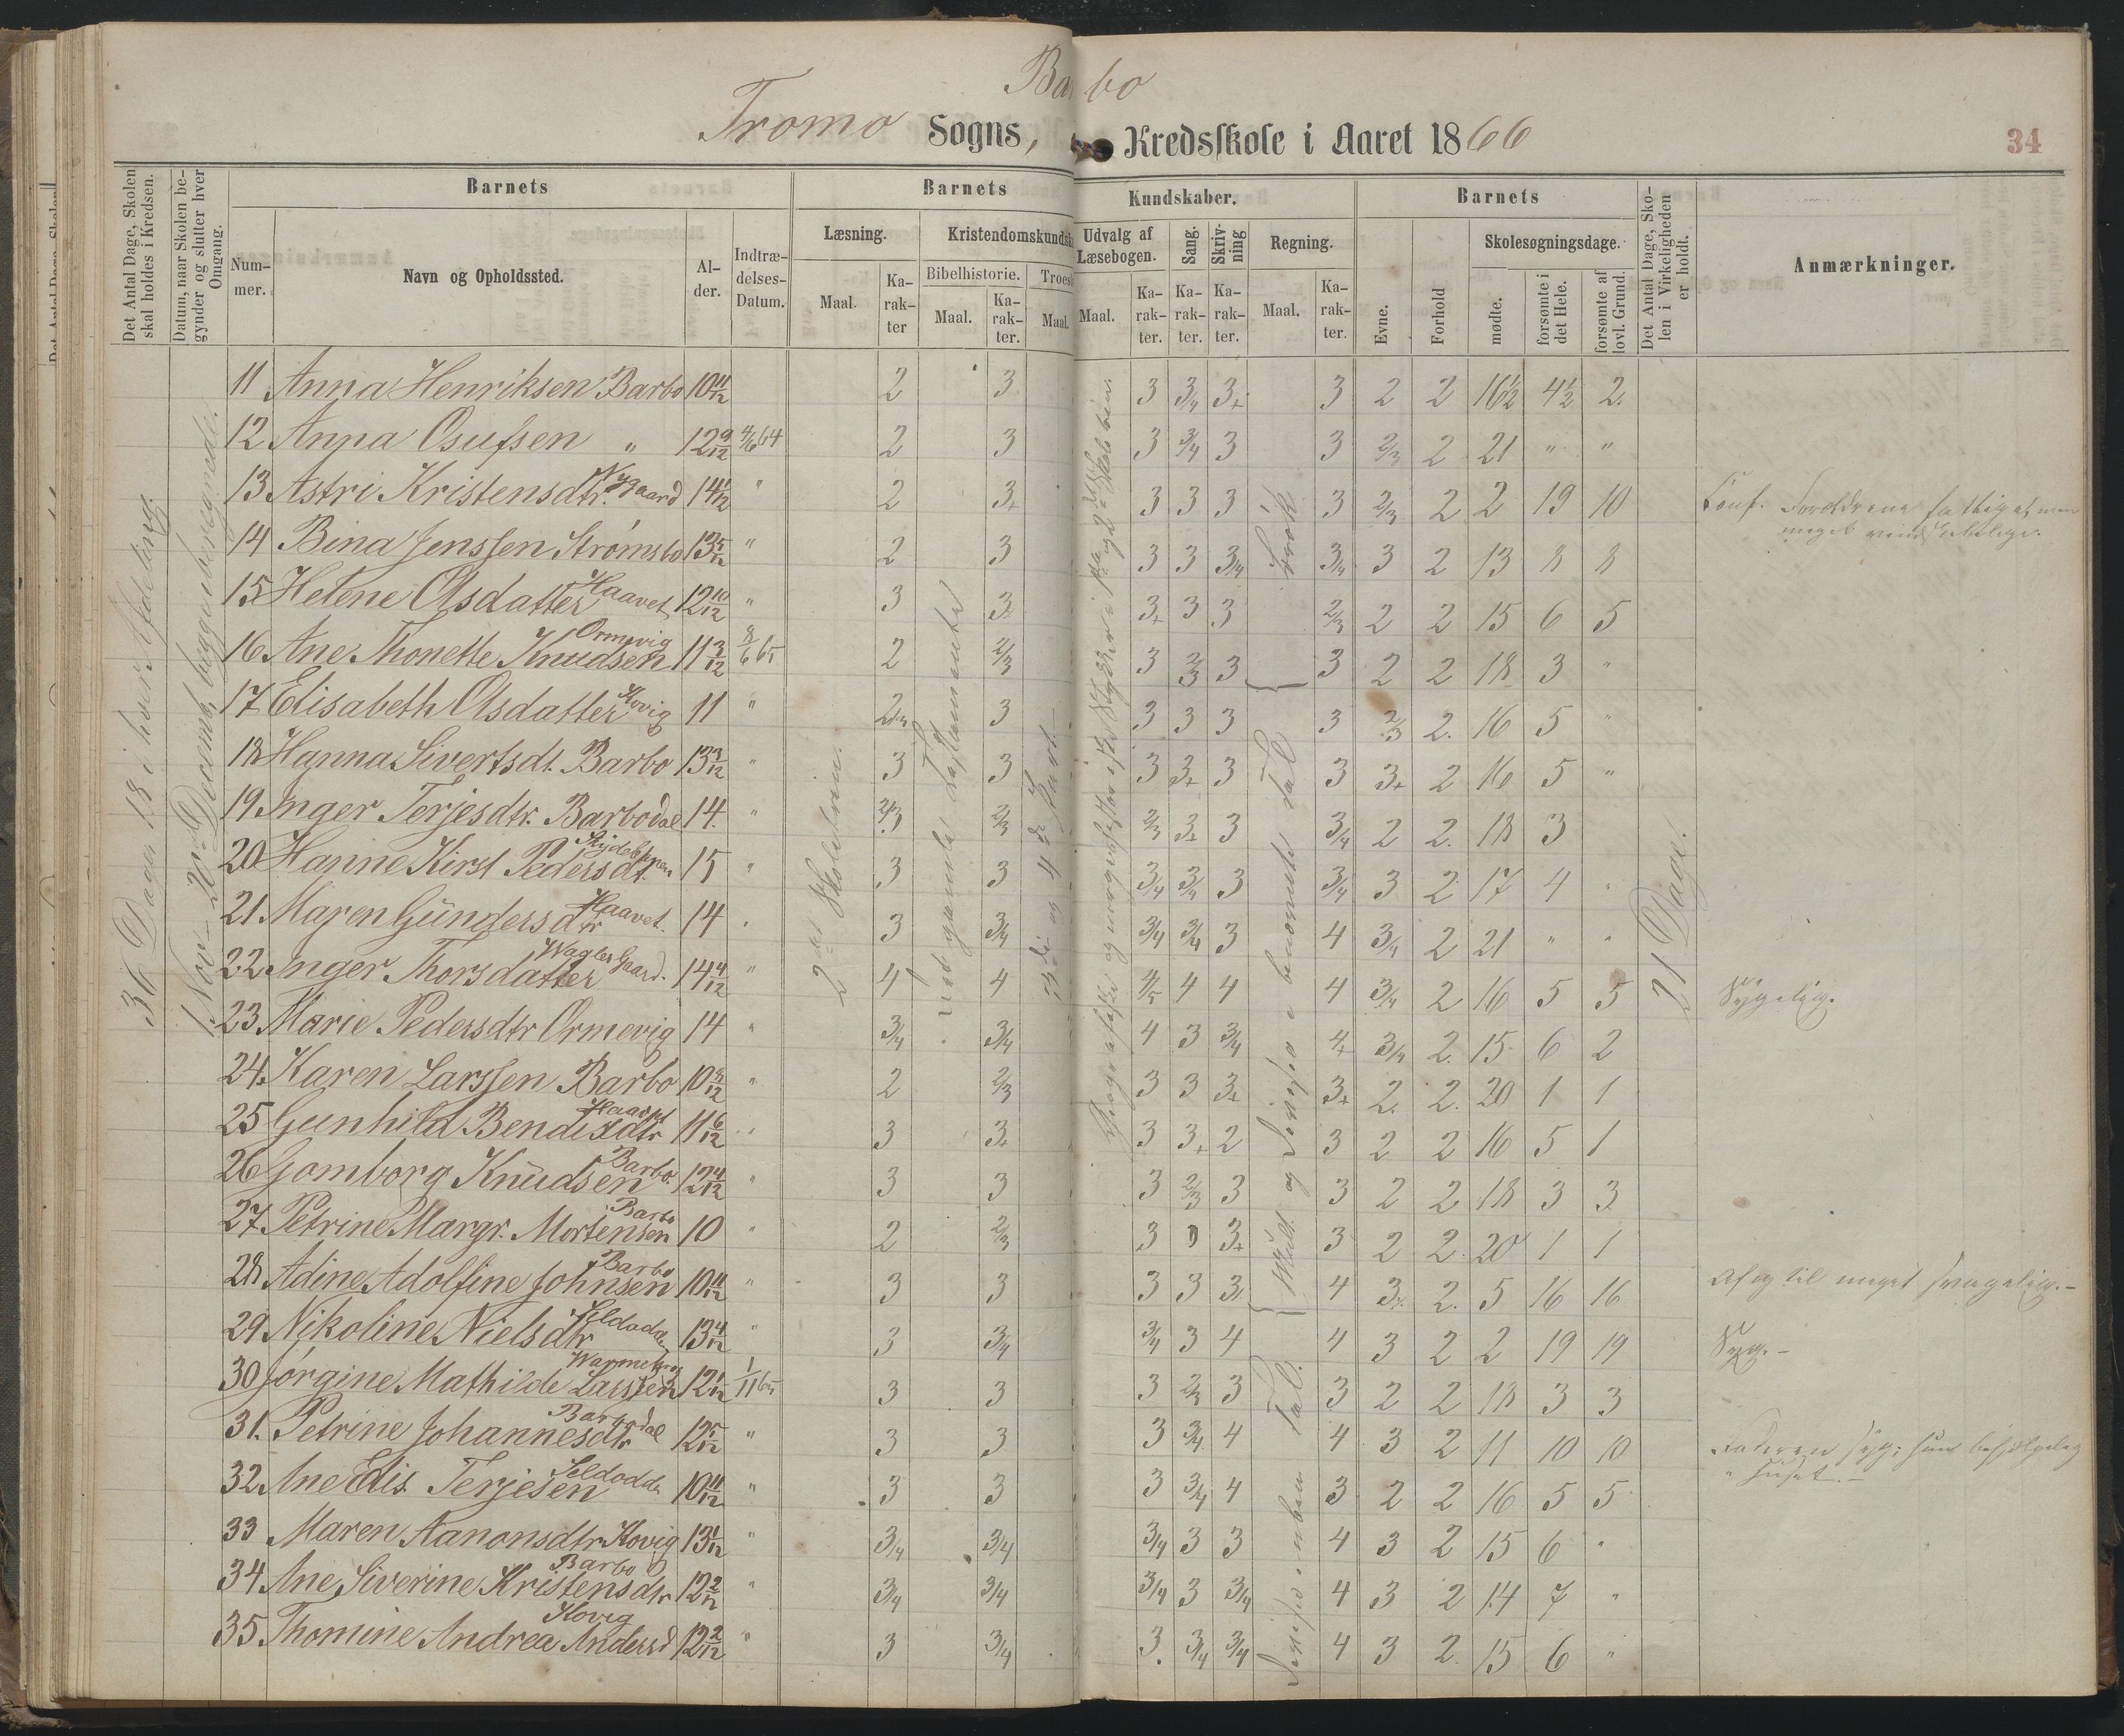 Barbo
Tromø Sogns, Kredsskole i Aaret 1866
34
Det Antal Dage, Skolen skal holdes i Kredsen.
Datum, naar Skolen begynder og slutter hver Omgang.
Barnets
Num-mer.
Navn og Opholdssted.
Al-der.
Indtræ-delses-Datum.
Barnets Kundskaber.
Læsning.
Maal.
Ka-rak-ter
Kristendomskundsk
Bibelhistorie.
Maal.
Ka-rak-ter.
Troes
Maal.
Udvalg af Læsebogen.
Maal.
Ka-rak-ter.
Sang.
Ka-rak-ter.
Skriv-ning
Ka-rak-ter.
Regning.
Maal.
Ka-rak-ter.
Barnets
Evne.
Forhold
Skolesøgningsdage.
mødte.
forsømte i det Hele.
forsømte af lovl. Grund.
Det Antal Dage, Sko-len i Virkeligheden er holdt.
Anmærkninger.
36 Dage 18 i hver Afdeling.
21 Dage.
11 Anna Henriksen Barbo 10 11/12 2 3 3 3/4 3+ 3 2 2 16½ 4½ 2.
12 Anna Osufsen " 12 9/12 4/6 64 2 3 3 3/4 3 3 2/3 2 21 " "
13 Astri Kristensdtr. Nygaard 14 1/12 " 2 3+ 3 3 3 3 2/3 2 2 19 10
14 Bina Jenssen Strømsbo 13 5/12 " 2 3 3 3 3/4 3/4 3 2 13 8 8
15 Helene Olsdatter Haavet 12 10/12 " 3 3+ 3+ 3 3 2/3 2 2 15 6 5
16 Ane Thonette Knudsen Ormevig 11 3/12 8/6 65 2 2/3 3 2/3 3 3 2 2 18 3 "
17 Elisabeth Olsdatter Kovig 11 " 3 3 3 3 3 2/3 2. 16 5 "
18 Hanna Sivertsdt. Barbo 13 3/12 " 3 3 3 3+ 3 3 3+ 2 16 5 "
19 Inger Terjesdtr. Barbodal 14. " 2/3 2/3 2/3 3+ 3 3/4 2 2. 18 3
20 Hanne Kirst Pedersdt. 15 " 3 3 3/4 3/4 3 3/4 3 2 17 4 "
21 Maren Gundersdtr Haavet. 14 " 3 3/4 3/4 3/4 3 4 3/4 2 21 " "
22 Inger Thorsdatter 14 4/12 " 4 4 4/5 4 4 4 3/4 2 16 5 5 Sygelig.
23 Marie Pedersdtr Ormevig 14 " 3/4 3/4 4 3 3/4 4+ 3/4 2. 15 6 2
24. Karen Larssen Barbo 10 8/12 " 2 2/3 3 3 3+ 3+ 2. 2. 20 1 1
25 Gunhild Bendixdtr Haavet 11 6/12 " 3 3+ 3 3+ 2 3 2 2 16 5 1
26 Gomborg Knudsen Barbo. 12 4/12 " 3 3 3 2/3 3 3 2 2 18 3 3
27. Petrine Margr. Mortensen Barbo 10 " 2 2/3 3 0 3+ 3 2 2 20 1 1
28 Adine Adolfine Johnsen Barbo 10 11/12 " 3 3 3 3 3 4 3 2. 5 16 16
29 Nikoline Nielsdtr 13 4/12 " 3 3/4 3/4 3 4 4 3 2 2 19 19 Syg.-
30 Jørgine Mathilde Larssen 12 1/12 1/11 65 3 3 3 2/3 3 3 2 2 18 3 3
31. Petrine Johannesdtr Barbodal 12 5/12 " 3 3 3 3/4 4 4 3 2 11 10 10
32 Ane Elis. Terjesen 10 11/12 " 3 3 3 3/4 4 3 2 2 16 5 5
33 Maren Aanonsdtr Kovig 13 1/12 " 3/4 3/4 3/4 3 3 4 3 2 15 6 "
34 Ane Siverine Kristensdtr Barbo 12 2/12 " 3/4 3/4 3/4 3 3/4 4 3 2 14 7 "
35. Thomine Andrea Andersd Kovig 12 2/12 " 3 3/4 3. 3/4 3/4 4 3 2. 15 6 "